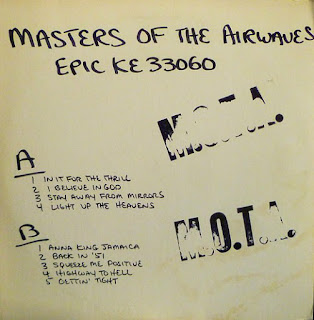 MASTERS OF THE AIRWAVES
EPIC KE 33060
M.O.T.A.
A
1 IN IT FOR THE THRILL
2 I BELIEVE IN GOD
3 STAY AWAY FROM MIRRORS
4 LIGHT UP THE HEAVENS
M.O.T.A.
B
1 ANNA KING JAMAICA
2 BACK IN '51
3 SQUEEZE ME POSITIVE
4 HIGHWAY TO HELL
5 GETTIN' TIGHT